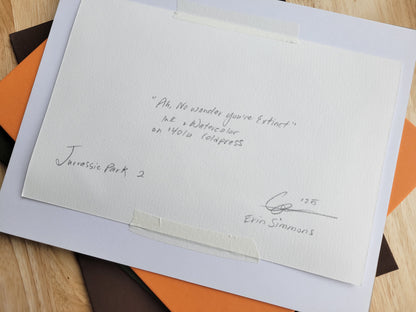 "Ah, No wonder you're Extinct"
Ink & Watercolor
on 140lb Coldpress
Jurrassic Park 2
'25
Erin Simmons